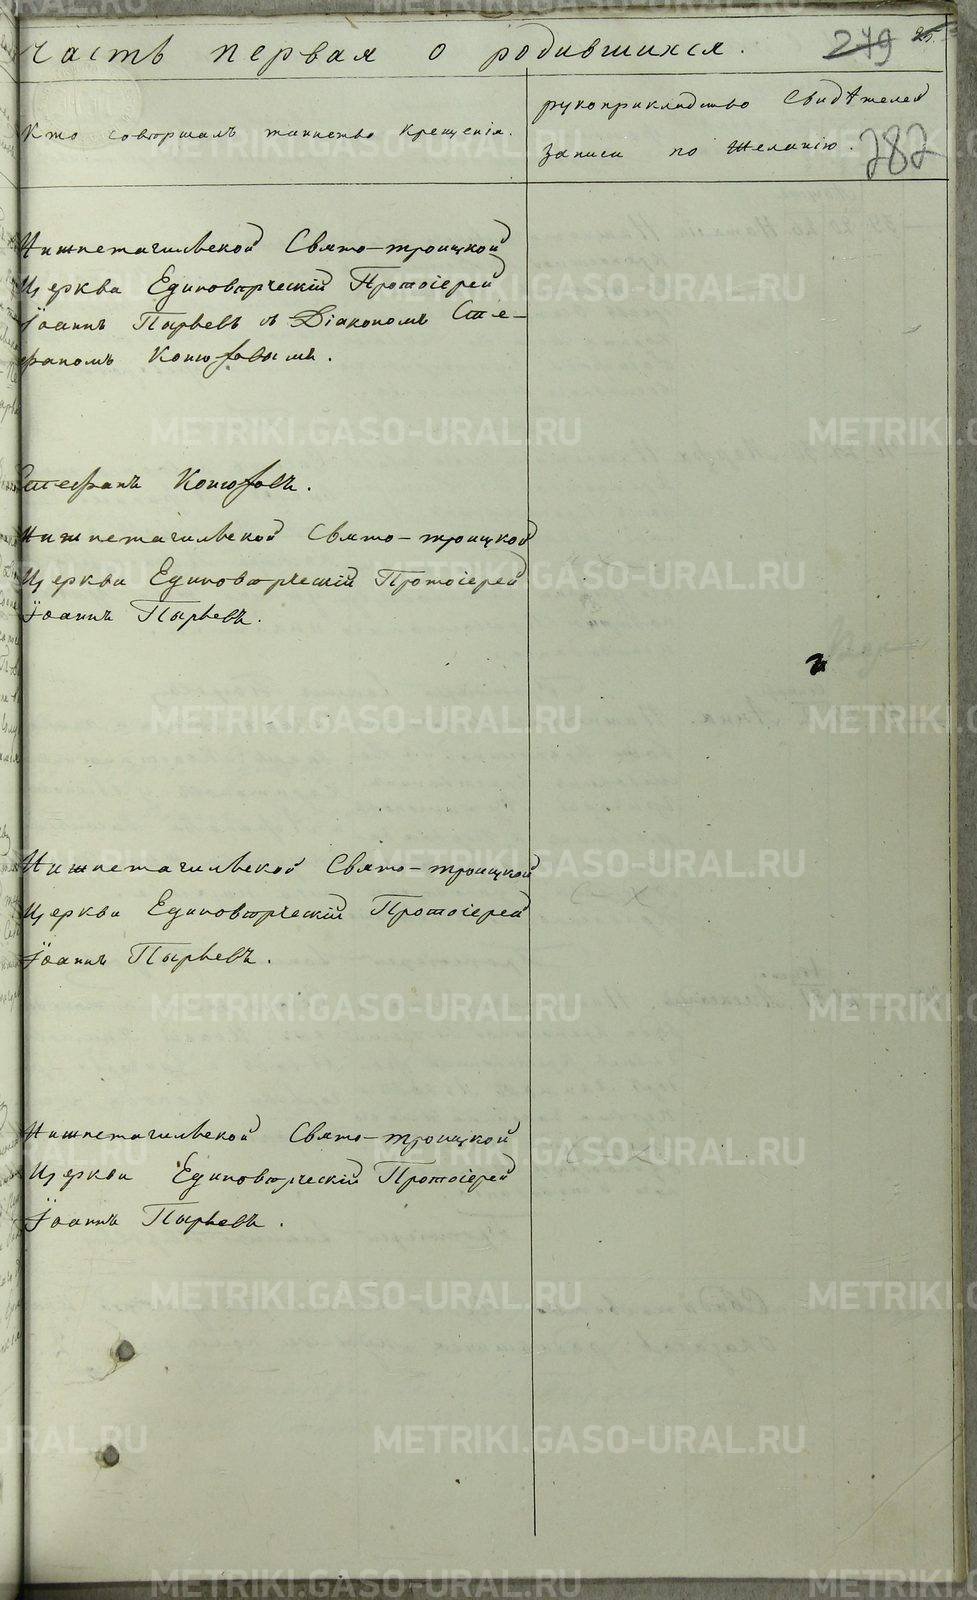 часть первая о родившихся.
279 25.
Кто совершалъ таинство крещенія.
рукоприкладство свидѣтелей
записи по желанію.
282
Нижнетагильской Свято-троицкой
Церкви Единовѣрческій Протоіерей
Іоаннъ Пырьевъ съ Діакономъ Сте-
фаномъ Конюховымъ.
Стефанъ Конюховъ.
Нижнетагильской Свято-троицкой
Церкви Единовѣрческій Протоіерей
Іоаннъ Пырьевъ.
Нижнетагильской Свято-троицкой
Церкви Единовѣрческій Протоіерей
Іоаннъ Пырьевъ.
Нижнетагильской Свято-троицкой
Церкви Единовѣрческій Протоіерей
Іоаннъ Пырьевъ.
METRIKI.GASO-URAL.RU